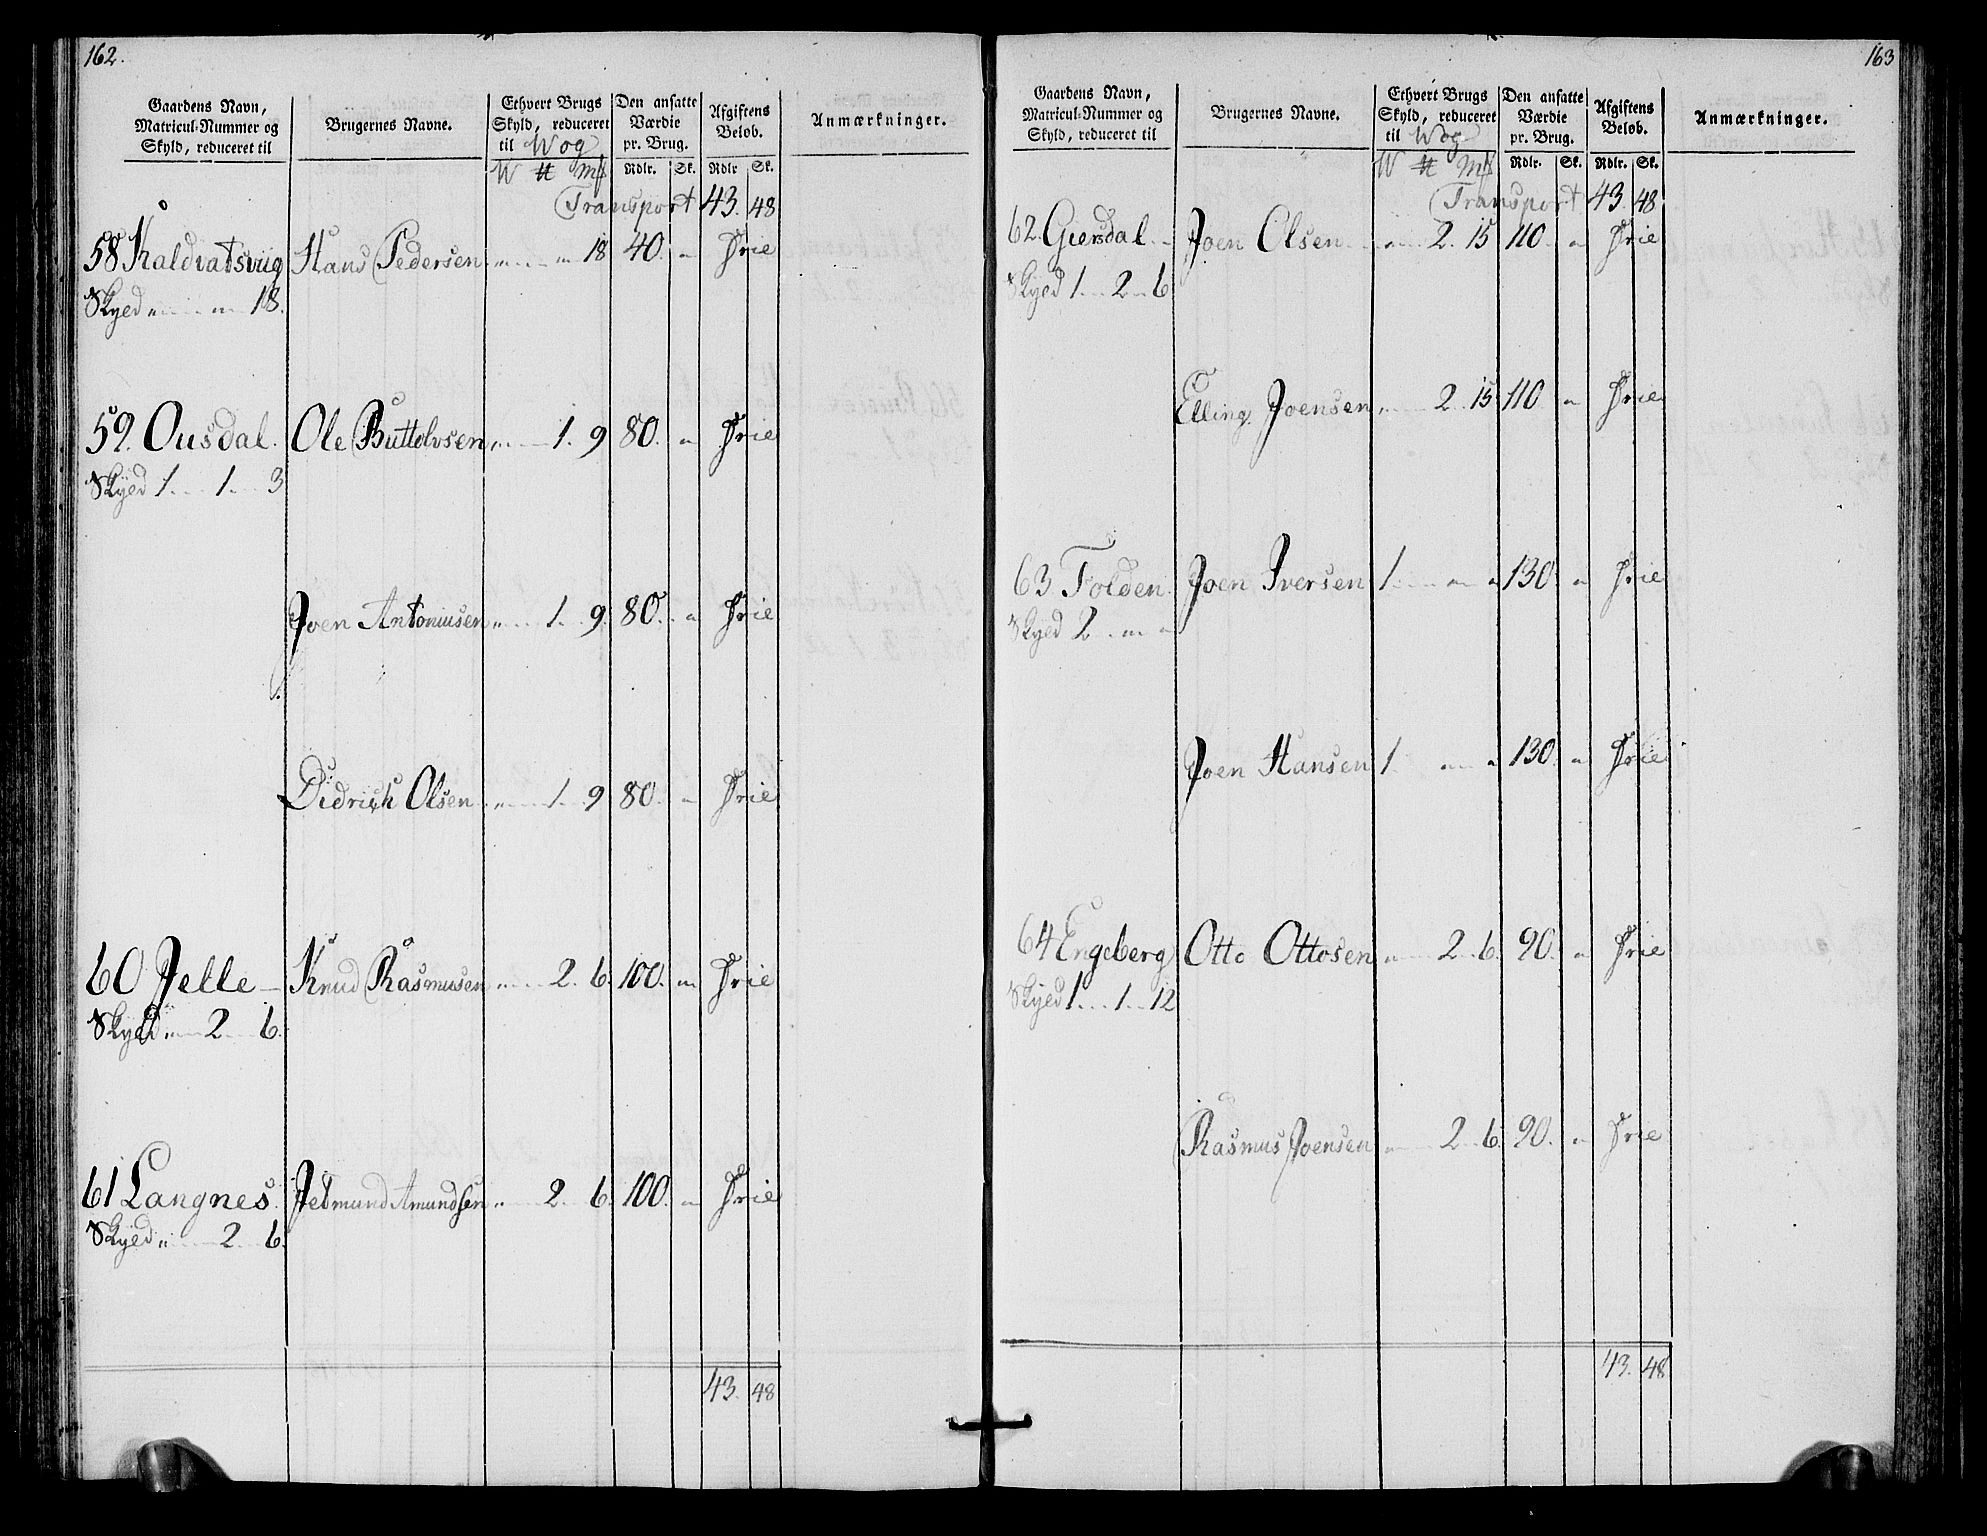 162.
Gaardens Navn, Matricul-Nummer og Skyld, reduceret til
Brugernes Navne.
Ethvert Brugs Skyld, reduceret til Wog
Den ansatte Værdie pr. Brug.
Afgiftens Beløb.
Anmærkninger.
W ℔ Mk Rdlr. Sk. Rdlr Sk.
Transport 43. 48
58 Kaldvatsvüg Hans Pedersen „ „ 18 40. „ Frie
Skyld „ „ 18.
59. Ousdal. Ole Buttolvsen „ 1. 9 80. „ Frie
Skyld 1 1 3
Joen Antoniusen „ 1. 9. 80. „ Frie
Didrich Olsen „ 1. 9 80. „ Frie
60 Jelle Knud Rasmusen „ 2. 6. 100. „ Frie
Skyld „ 2. 6.
61 Langnes. Jetmund Amundsen „ 2. 6. 100. „ Frie
Skyld „ 2. 6.
43. 48
163
Gaardens Navn, Matricul-Nummer og Skyld, reduceret til
Brugernes Navne.
Ethvert Brugs Skyld, reduceret til Wog
Den ansatte Værdie pr. Brug.
Afgiftens Beløb.
Anmærkninger.
W ℔ Mk Rdlr. Sk. Rdlr. Sk.
Transport 43. 48
62. Giersdal. Joen Olsen „ 2. 15 110. „ Frie
Skyld 1 2 6
Elling Joensen „ 2. 15 110. „ Frie
63 Folden. Joen Iversen 1 „ „ 130. „ Frie
Skyld 2 „ „
Joen Hansen 1 „ „ 130. „ Frie
64 Engeberg Otto Ottosen „ 2. 6. 90. „ Frie
Skyld 1 1 12
Rasmus Joensen „ 2. 6. 90. „ Frie
43. 48